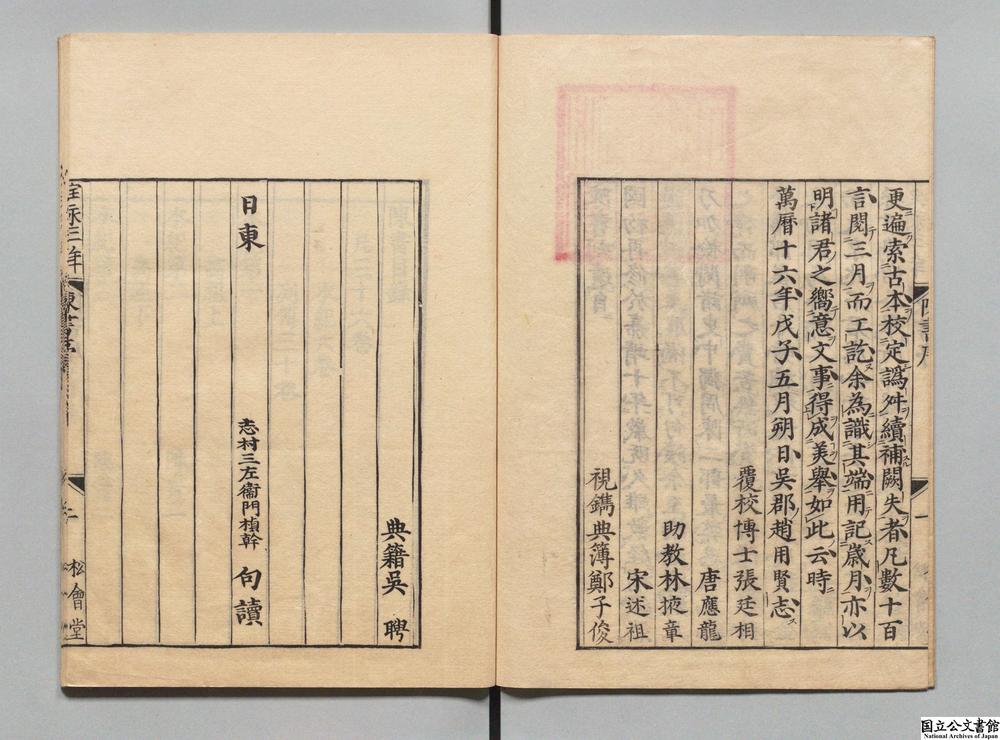 更遍索古本校定譌舛續補闕失者凡數十百
言閱三月而工訖余為識其端用記歲月亦以
明諸君之嚮意文事得成美舉如此云時
萬曆十六年戊子五月朔日吳郡趙用賢志
覆校博士張廷相
唐應龍
助教林掖章
宋述祖
視鐫典簿鄭子俊
典籍吳聘
日東
志村三左衞門楨幹 句讀
松會堂
国立公文書館
National Archives of Japan